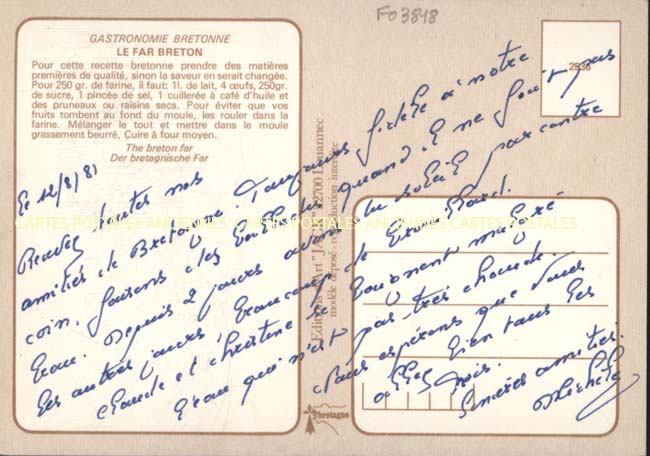 F03818
GASTRONOMIE BRETONNE
LE FAR BRETON
Pour cette recette bretonne prendre des matières
premières de qualité, sinon la saveur en serait changée.
Pour 250 gr. de farine, il faut: 1l. de lait, 4 œufs, 250gr.
de sucre, 1 pincée de sel, 1 cuillerée à café d'huile et
des pruneaux ou raisins secs. Pour éviter que vos
fruits tombent au fond du moule, les rouler dans la
farine. Mélanger le tout et mettre dans le moule
grassement beurré, Cuire à four moyen.
The breton far
Der bretagnische Far
2538
Editions d'Art "JA 22700 Louannec
modèle déposé - reproduction interdite
CARTES POSTALES ANCIENNES CARTES POSTALES ANCIENNES CARTES POSTALES
le 12/8/81
Recevez toutes nos
amitiés de Bretagne. Toujours fidèle à notre
coin, faisons des quand il ne fait pas
beau. Depuis 2 jours avons du soleil par contre
les autres jours, beaucoup de brouillard.
Claude et Christine se baignent malgré
l'eau qui n'est pas très chaude.
Nous espérons que vous
allez bien tous les
trois.
Sincères amitiés.
Michèle
bretagne